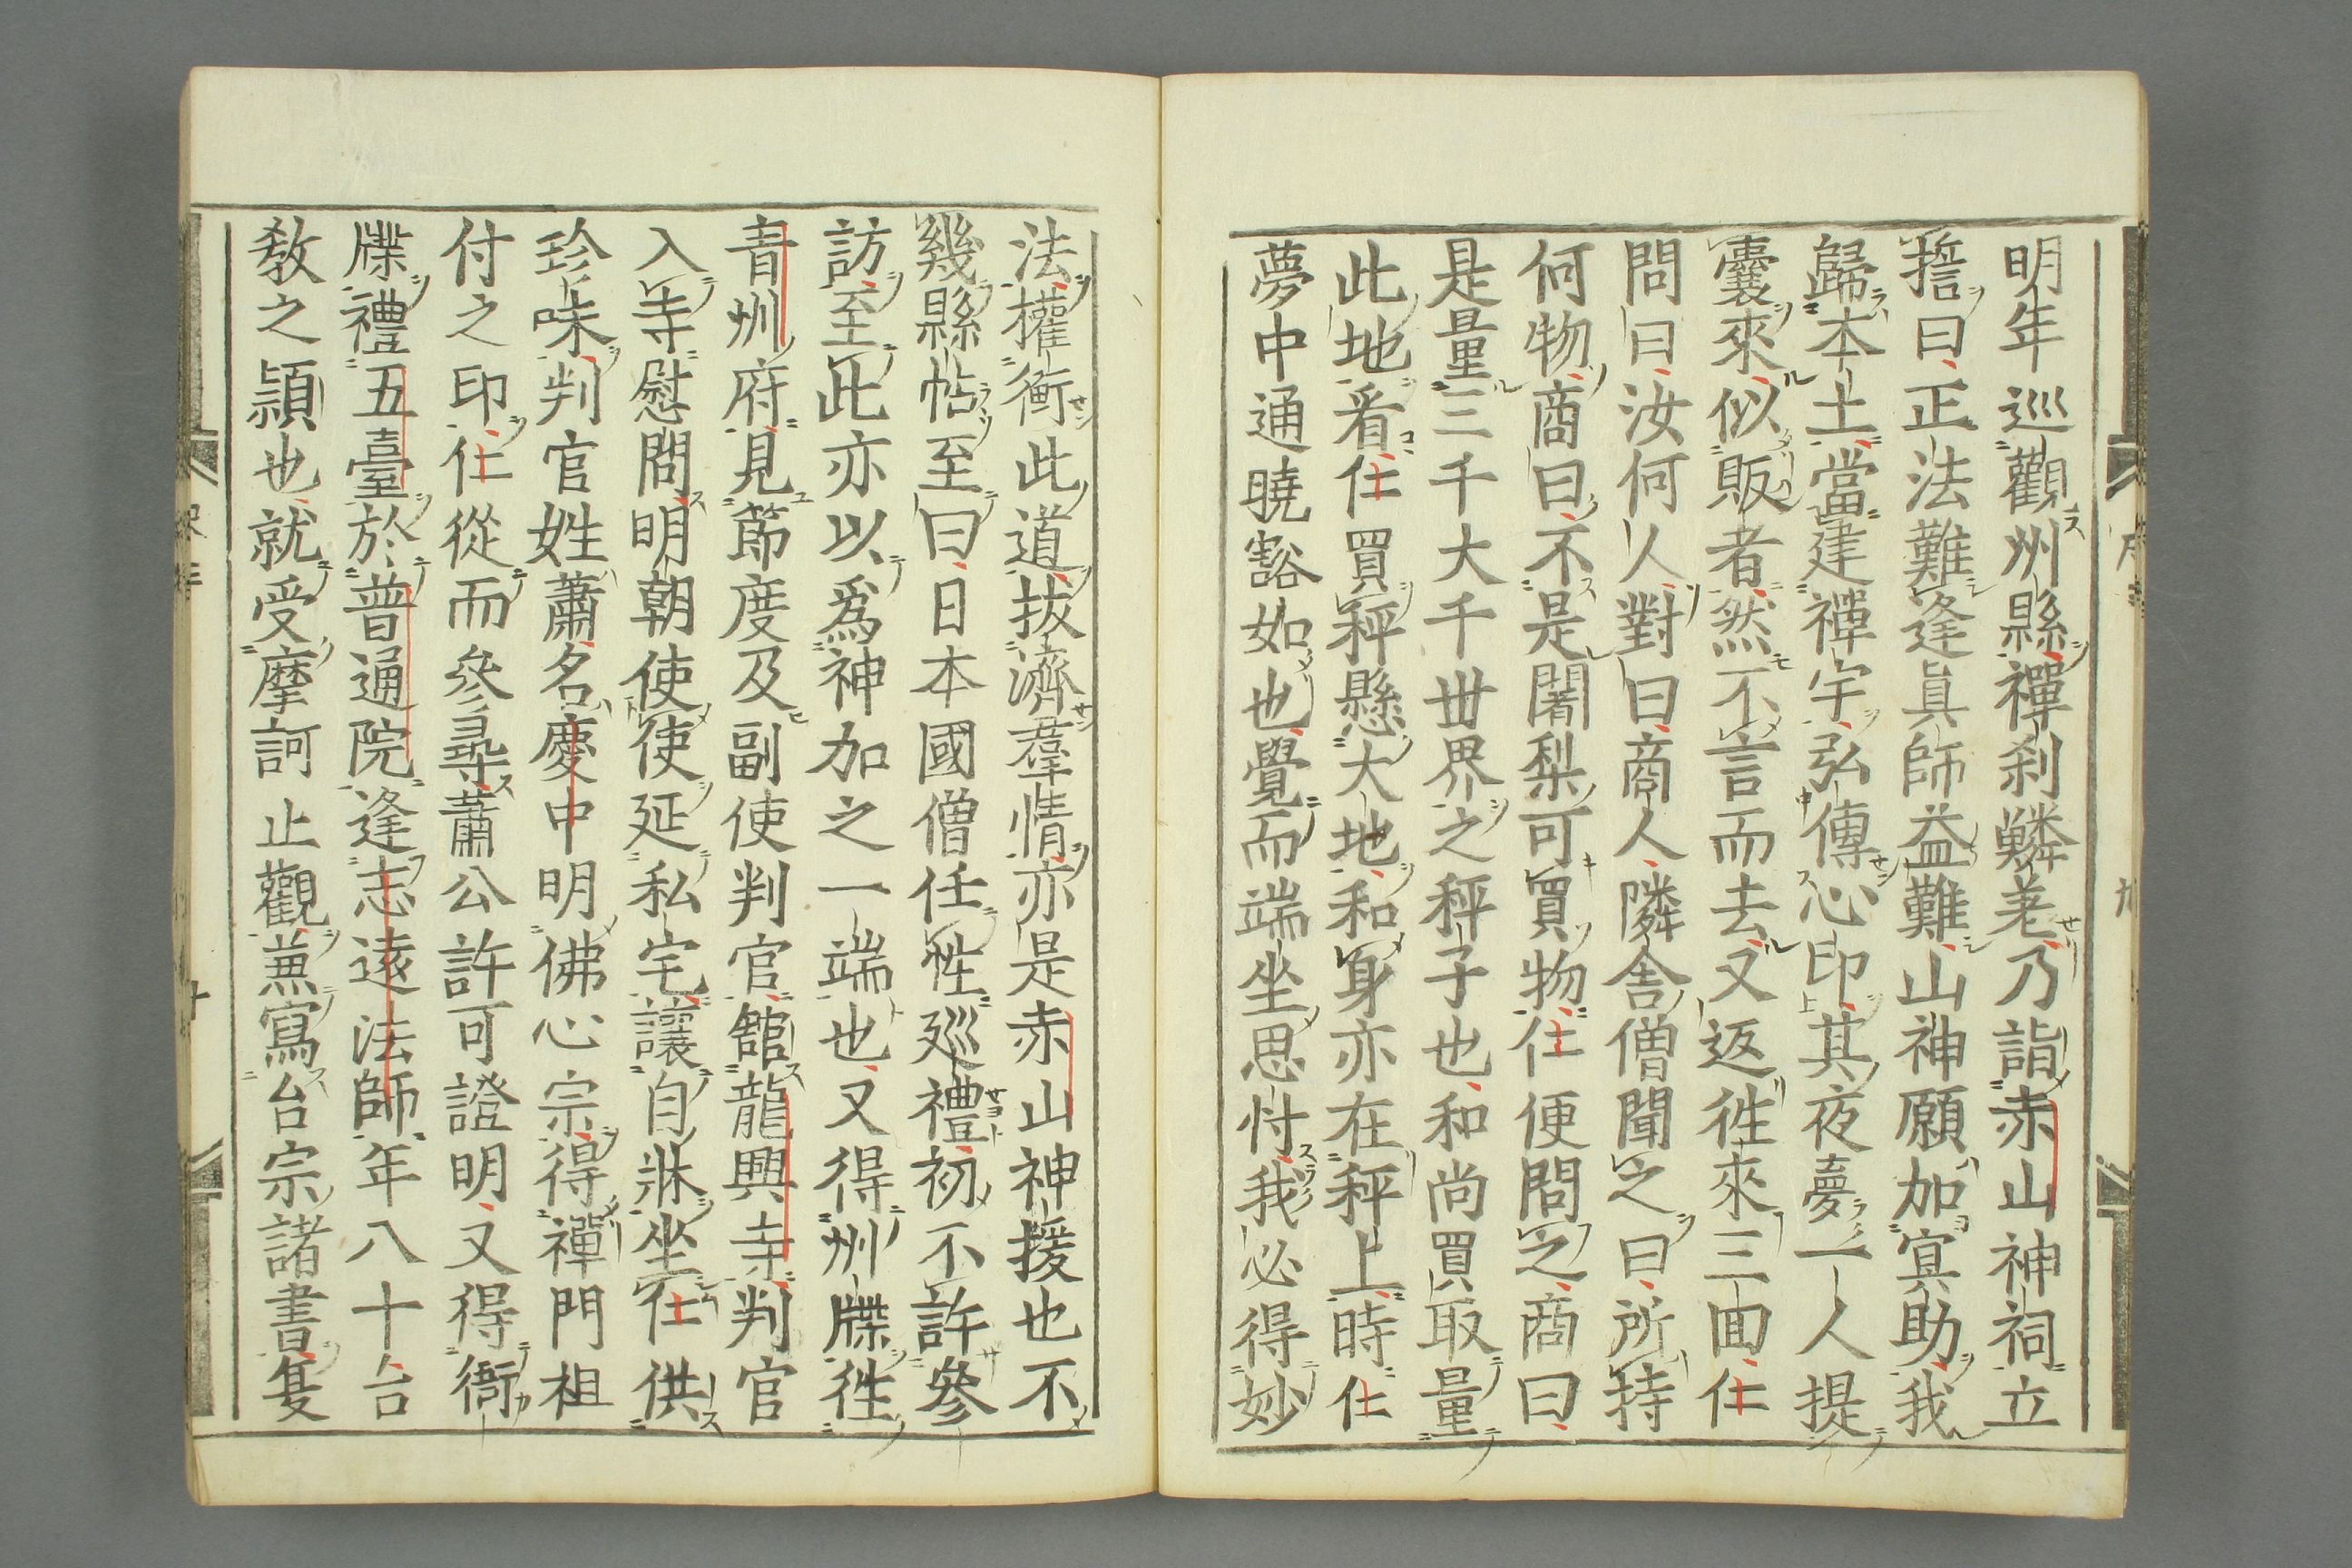 明年巡觀州縣禪刹鱗差乃詣赤山神祠立
擔曰正法難逢眞師益難山神願加冥助我
歸本土當建禪宇弘傳心印其夜夢一人提
囊來似販者然不言而去又返徃來三面仁
問曰汝何人對曰商人隣舎僧聞之曰所持
何物商曰不是闍梨可買物仁便問之商曰
是量三千大千丗界之秤子也和尚買取量
此地看仁買秤懸大地和身亦在秤上時仁
夢中通曉豁如也覺而端坐思忖我必得妙
法權衡此道拔濟羣情亦是赤山神援也不
幾縣帖至曰日本國僧任徃廵禮初不許參
訪至此亦以爲神加之一端也又得州牒徃
青州府見節度及副使判官舘龍興寺判官
入寺慰問明朝使使延私宅讓自牀坐仁供
珍味判官姓蕭名慶中明佛心宗得禪門祖
付之印仁從而參尋蕭公許可證明又得衙
牒禮五臺於普通院逢志遠法師年八十台
教之頴也就受摩訶止觀兼寫台宗諸書隻